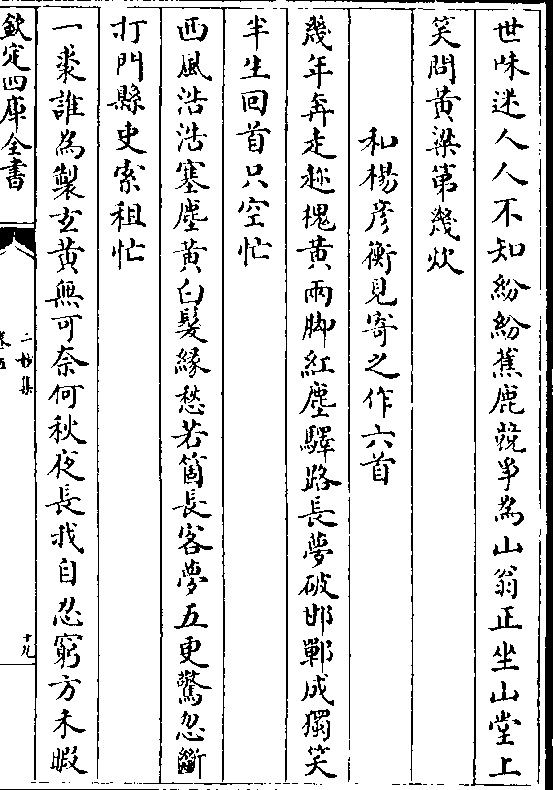 世味迷人人不知紛紛蕉鹿競爭為山翁正坐山堂上
笑問黃粱第幾炊
和楊彦衡見寄之作六首
幾年奔走趂槐黃兩脚紅塵驛路長夢破邯鄲成獨笑
半生回首只空忙
西風浩浩塞塵黃白髮緣愁若箇長客夢五更驚忽斷
打門縣吏索租忙
一裘誰為製玄黃無可奈何秋夜長我自忍窮方未暇
欽定四庫全書
二妙集
卷五
十九